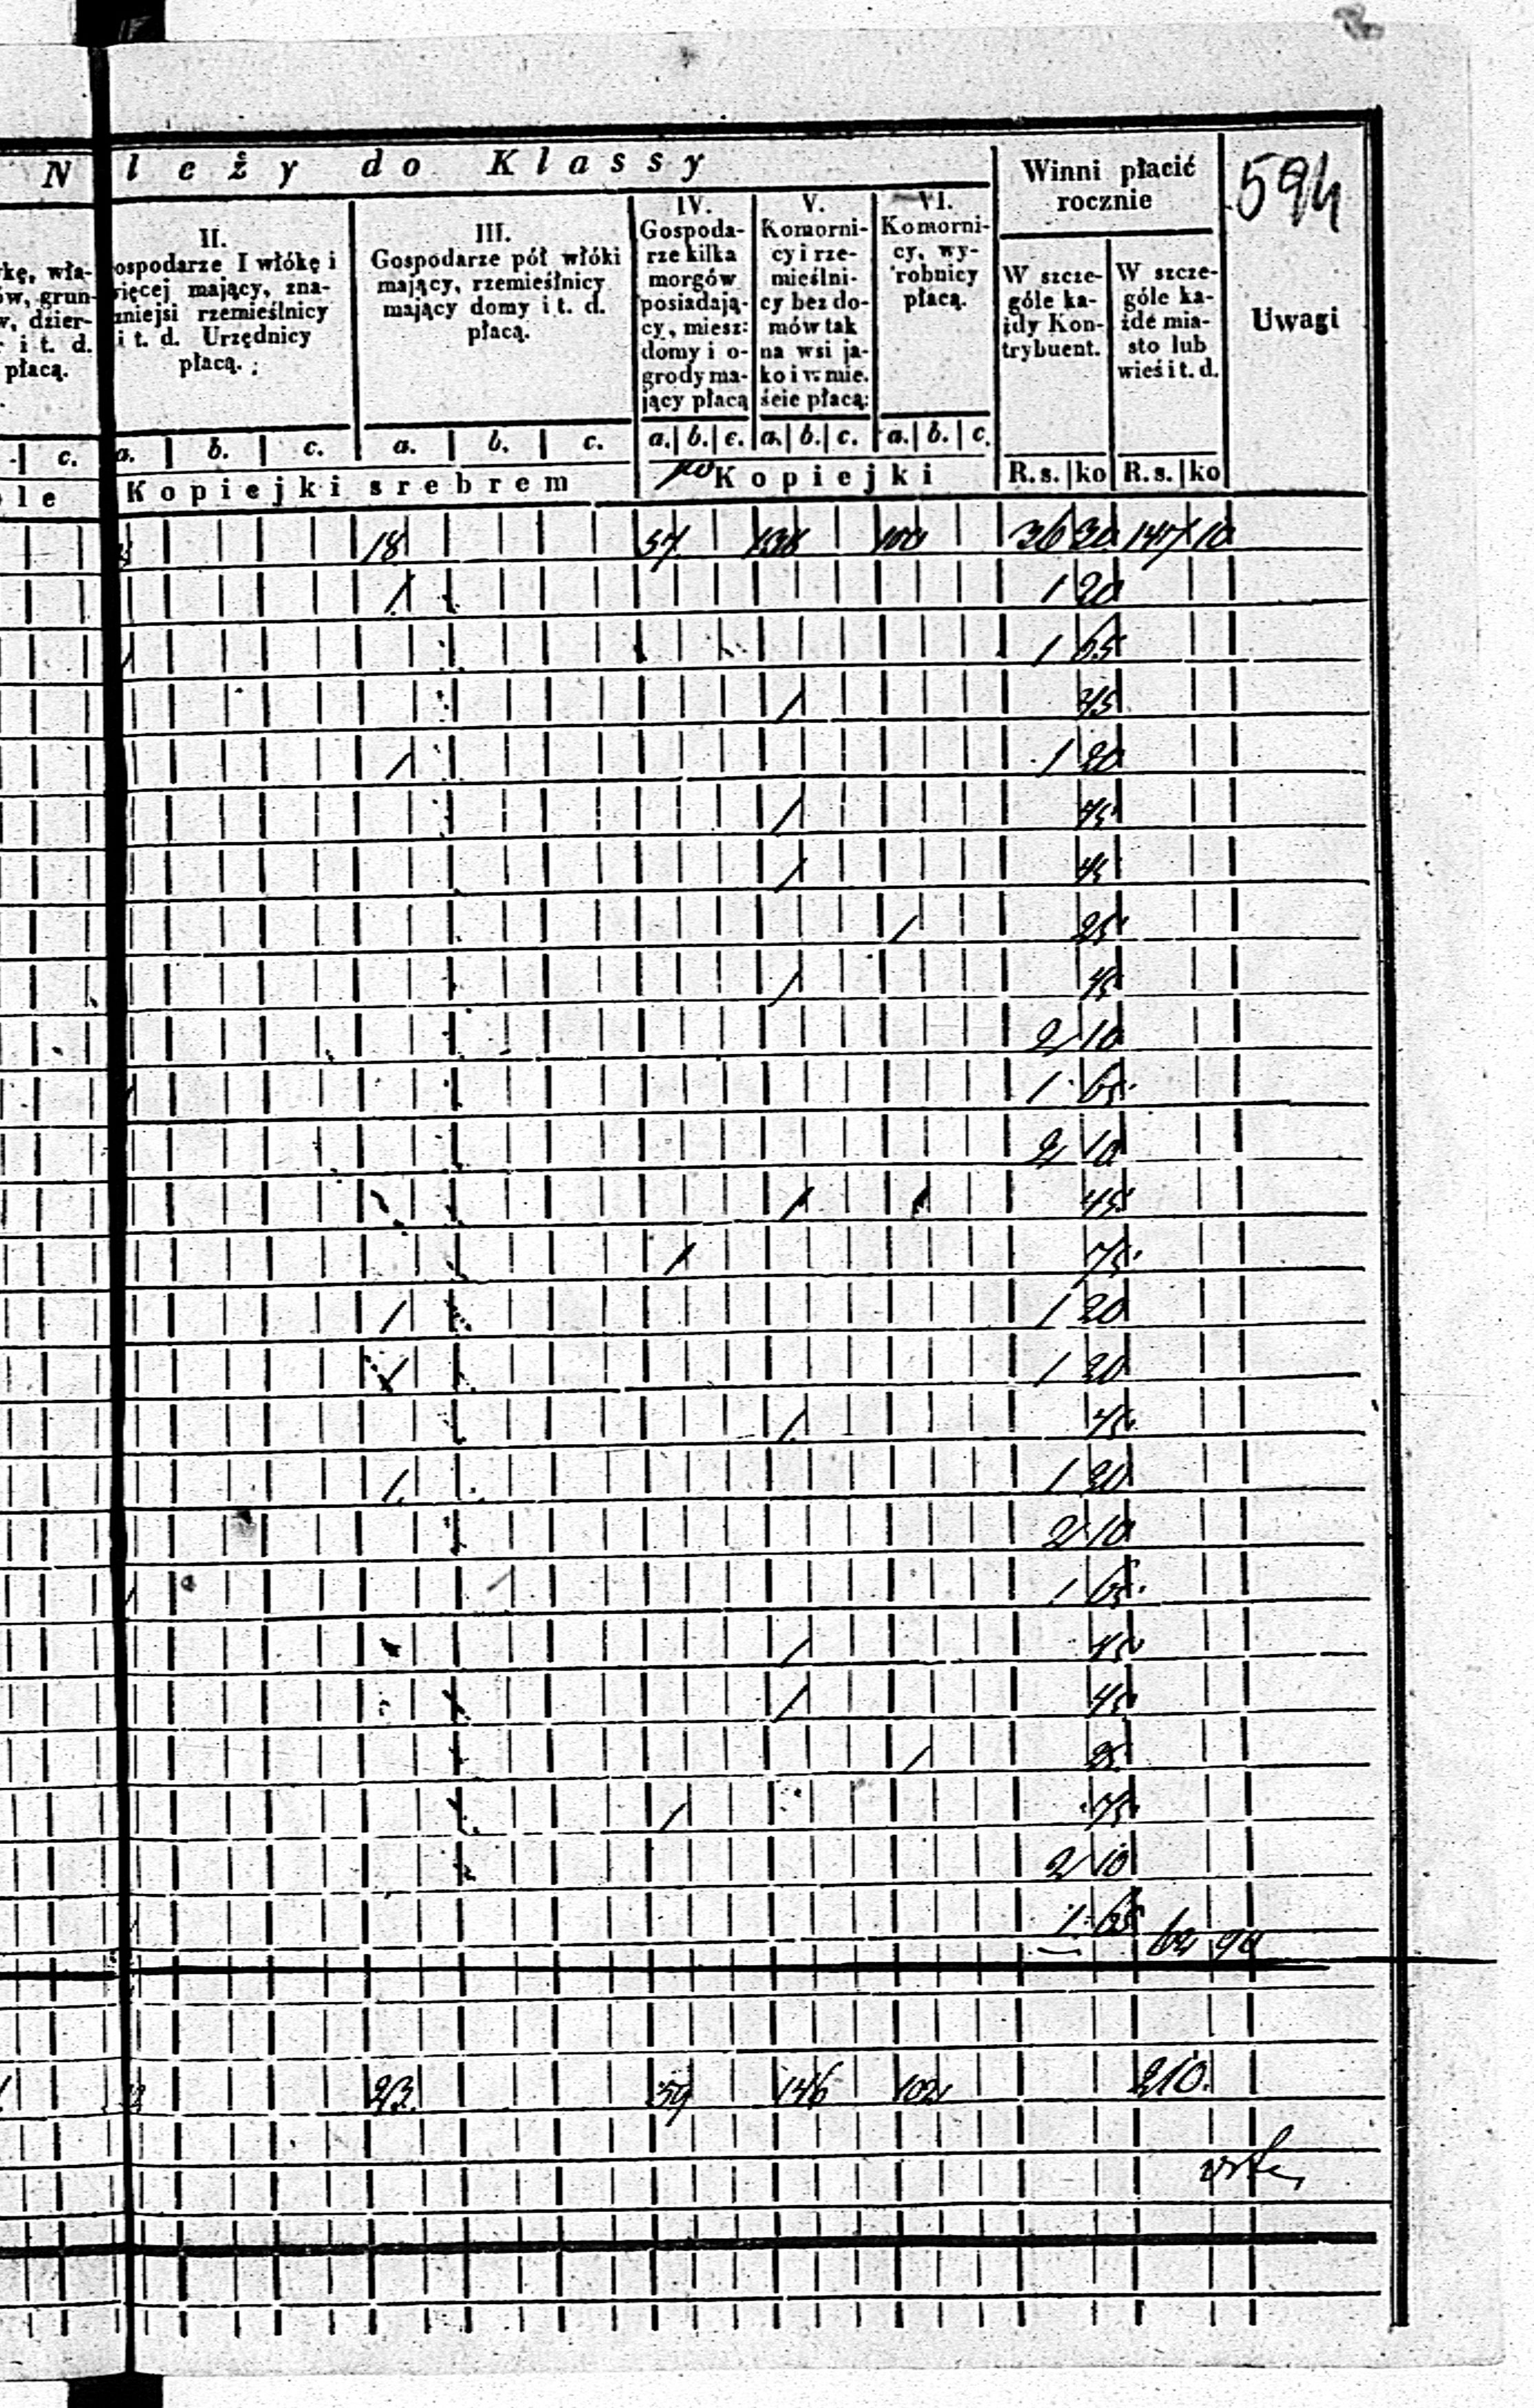 N leży do Klassy
Winni płacić
rocznie
594
kę, wła-
ów, grun-
w, dzier-
i t. d.
płacą.
II.
ospodarze I włókę i
więcej mający, zna-
zniejsi rzemieślnicy
i t. d. Urzędnicy
płacą.
III.
Gospodarze pół włóki
mający, rzemieślnicy
mający domy i t. d.
płacą.
IV.
Gospoda-
rze kilka
morgów
posiadają-
cy, miesz:
domy i o-
grody ma-
jący płacą
V.
Komorni-
cy i rze-
mieślni-
cy bez do-
mów tak
na wsi ja-
ko i w mie.
ście płacą:
VI.
Komorni-
cy, wy-
robnicy
płacą.
W szcze-
góle ka-
żdy Kon-
trybuent.
W szcze-
góle ka-
żde mia-
sto lub
wieś i t. d.
Uwagi
c. a. b. c. a. b. c. a. b. c. a. b. c. a. b. c.
le Kopiejki srebrem Kopiejki R. s. ko R. s. ko
18 57 138 100 36 30 147 10
1 1 20
1 1 65
1 45
1 1 20
1 45
1 45
1 25
1 45
2 10
1 1 65
2 10
1 45
1 75
1 1 20
1 1 20
1 45
1 1 20
2 10
1 1 65
1 45
1 45
1 25
1 75
2 10
1 65
62 90
23 59 146 102 210